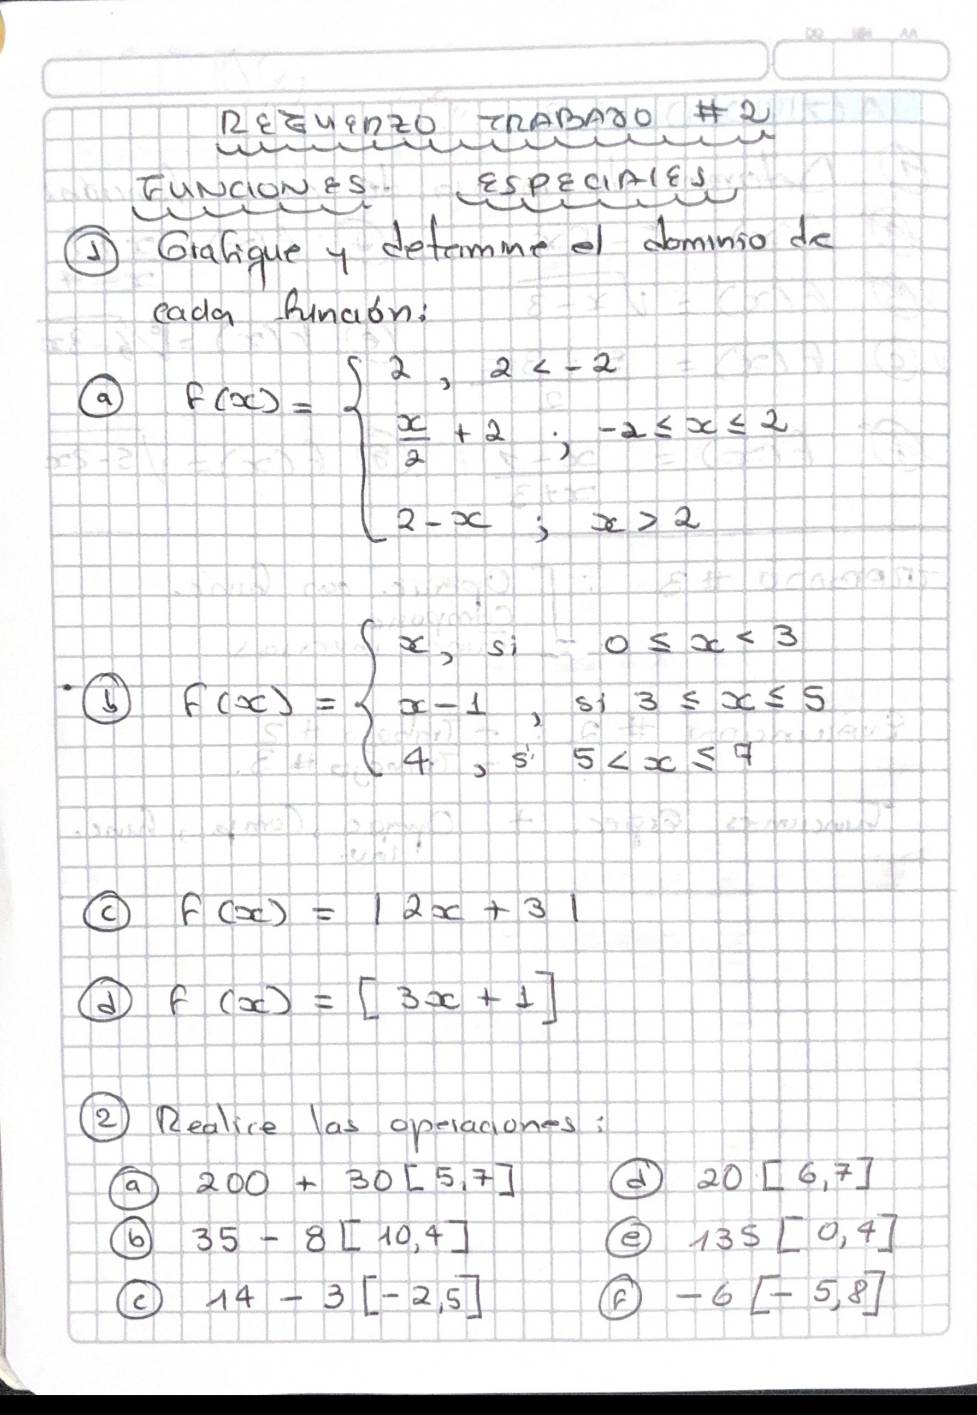 REFUERZO TRABAJO #2
FUNCIONES ESPECIALES
① Grafique y determine el dominio de
cada función:
ⓐ f(x) = { 2 , 2 < -2
x/2 + 2 ; -2 ≤ x ≤ 2
2 - x ; x > 2
ⓑ f(x) = { x, si 0 ≤ x < 3
x - 1 , si 3 ≤ x ≤ 5
4 , si 5 < x ≤ 7
ⓒ f(x) = | 2x + 3 |
ⓓ f (x) = [ 3x + 1 ]
② Realice las operaciones :
ⓐ 200 + 30 [ 5,7 ] ⓓ 20 [ 6,7 ]
ⓑ 35 - 8 [ 10,4 ] ⓔ 135 [ 0,4 ]
ⓒ 14 - 3 [ -2,5 ] ⓕ -6 [ - 5,8 ]